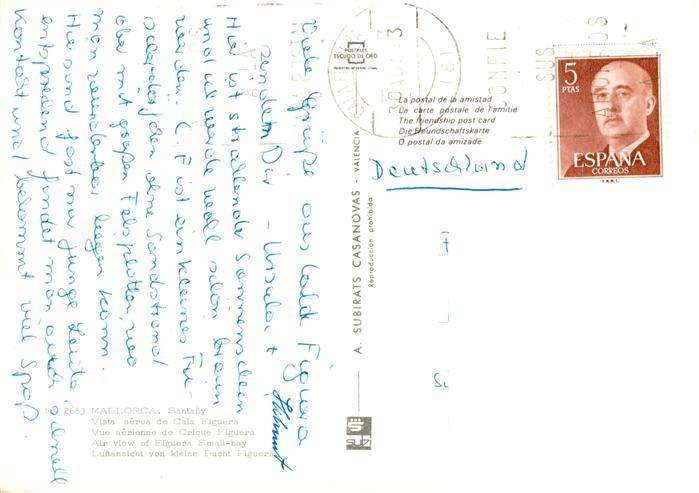 Viele Grüße aus Cala Figuera
senden Dir - Ursula +
Helmut
Hier ist strahlender Sonnenschein
und ich werde wohl schon braun
werden. C. F. ist ein kleines Fi-
ohne Sandstrand
aber mit großen Felsplatten, wo
man wunderbar liegen kann.
Hier sind fast nur junge Leute,
entsprechend findet man auch schnell
Kontakt und bekommt viel Spaß.
POSTALES
ESCUDO DE ORO
La postal de la amistad
La carte postale de l'amitié
The friendship post card
Die Freundschaftskarte
O postal da amizade
5
PTAS
ESPAÑA
CORREOS
F.N.M.T.
CONFIE
SUS
Deutschland
A. SUBIRATS CASANOVAS - VALENCIA
Reproducción prohibida
2683 MALLORCA. Santañy
Vista aérea de Cala Figuera
Vue aérienne de Crique Figuera
Air view of Figuera Small-bay
Luftansicht von kleine Bucht Figuera